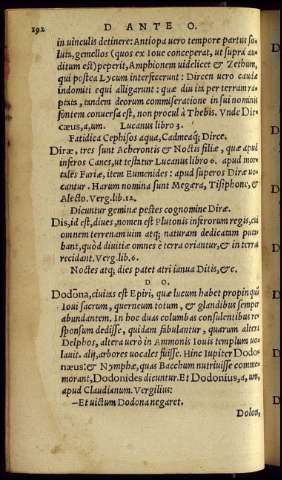 192 D. ANTE O.
in uinculis detinere: Antiopa uero tempore partus so
luta, gemellos (quos ex Ioue conceperat, ut supra au-
ditum est) peperit, Amphionem uidelicet & Zethum,
qui postea Lycum interfecerunt: Dircen uero caudæ
indomiti equi alligarunt: quæ diu ita per terram ra-
ptata, tandem deorum commiseratione in sui nominis
fontem conuersa est, non procul à Thebis. Vnde Dir-
cæus, a, um. Lucanus libro 3.
Fatidica Cephisos aqua, Cadmeaq́; Dirce.
Diræ, tres sunt Acherontis & Noctis filiæ, quæ apud
inferos Canes, ut testatur Lucanus libro 6. apud mor
tales Furiæ, item Eumenides: apud superos Diræ uo-
cantur. Harum nomina sunt Megæra, Tisiphone, &
Alecto. Verg. lib. 12.
Dicuntur geminæ pestes cognomine Diræ.
Dis, id est, diues, nomen est Plutonis inferorum regis, cui
omnem terrenam uim atq; naturam dedicatam puta
bant, quòd diuitiæ omnes è terra oriantur, & in terrã
recidant. Verg. lib. 6.
Noctes atq; dies patet atri ianua Ditis, &c.
D O.
Dodona, ciuitas est Epiri, quæ lucum habet propinquũ
Ioui sacrum, querneum totum, & glandibus semper
abundantem. In hoc duas columbas consulentibus re
sponsum dedisse, quidam fabulantur, quarum altera
Delphos, altera uerò in Ammonis Iouis templum uo
lauit. alij, arbores uocales fuisse. Hinc Iupiter Dodo
næus: & Nymphæ, quas Bacchum nutriuisse comme
morant, Dodonides dicuntur. Et Dodonius, a, um,
apud Claudianum. Vergilius:
—Et uictum Dodona negaret.
Dolon,